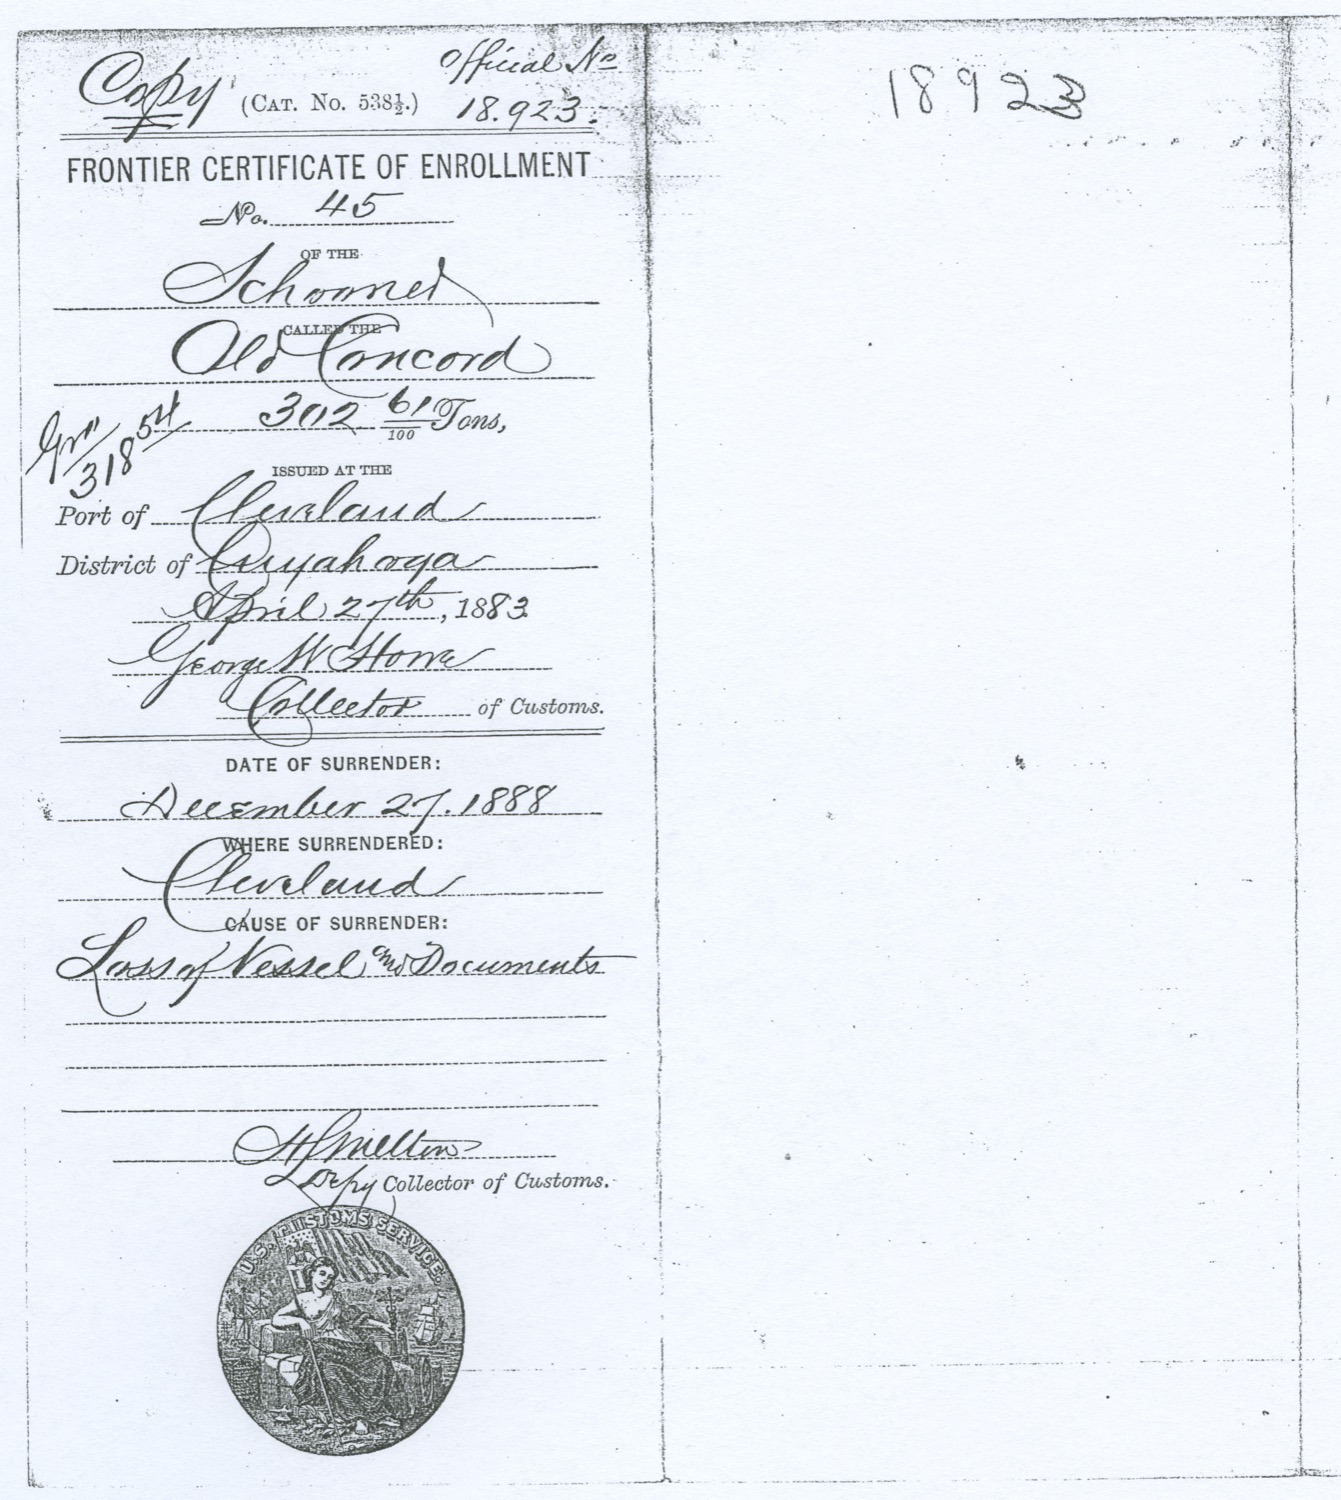 Copy
Official No
(CAT. No. 538½.)
18.923.
FRONTIER CERTIFICATE OF ENROLLMENT
No. 45
OF THE
Schooner
CALLED THE
Old Concord
302 61/100 Tons,
318 54
ISSUED AT THE
Port of Cleveland
District of Cuyahoga
April 27th, 1883
George W Howe
Collector of Customs.
DATE OF SURRENDER:
December 27. 1888
WHERE SURRENDERED:
Cleveland
CAUSE OF SURRENDER:
Loss of Vessel and Documents
Depy Collector of Customs.
U.S. CUSTOMS SERVICE.
18923